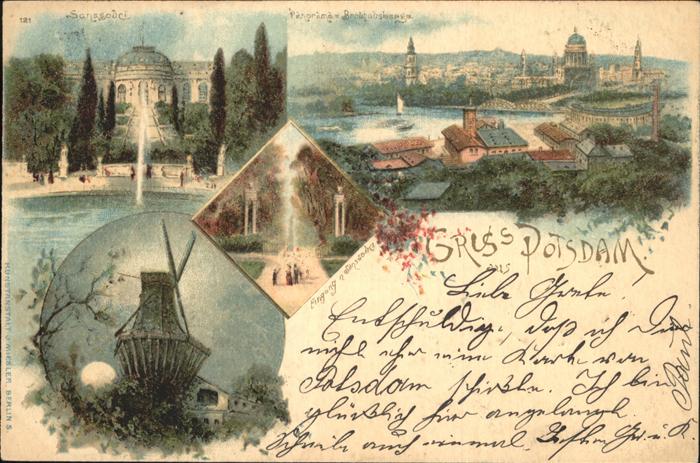 121
Sanssouci
Panorama v. Brauhausberge
Eingang v. Sanssouci
GRUSS
aus
POTSDAM
Liebe Grete!
Entschuldige, daß ich Dir
nicht eher eine Karte von
Potsdam schickte. Ich bin
glücklich hier angelangt.
Schreibe auch einmal. Besten Gr. u. K.
KUNSTANSTALT J. MIESLER, BERLIN S.